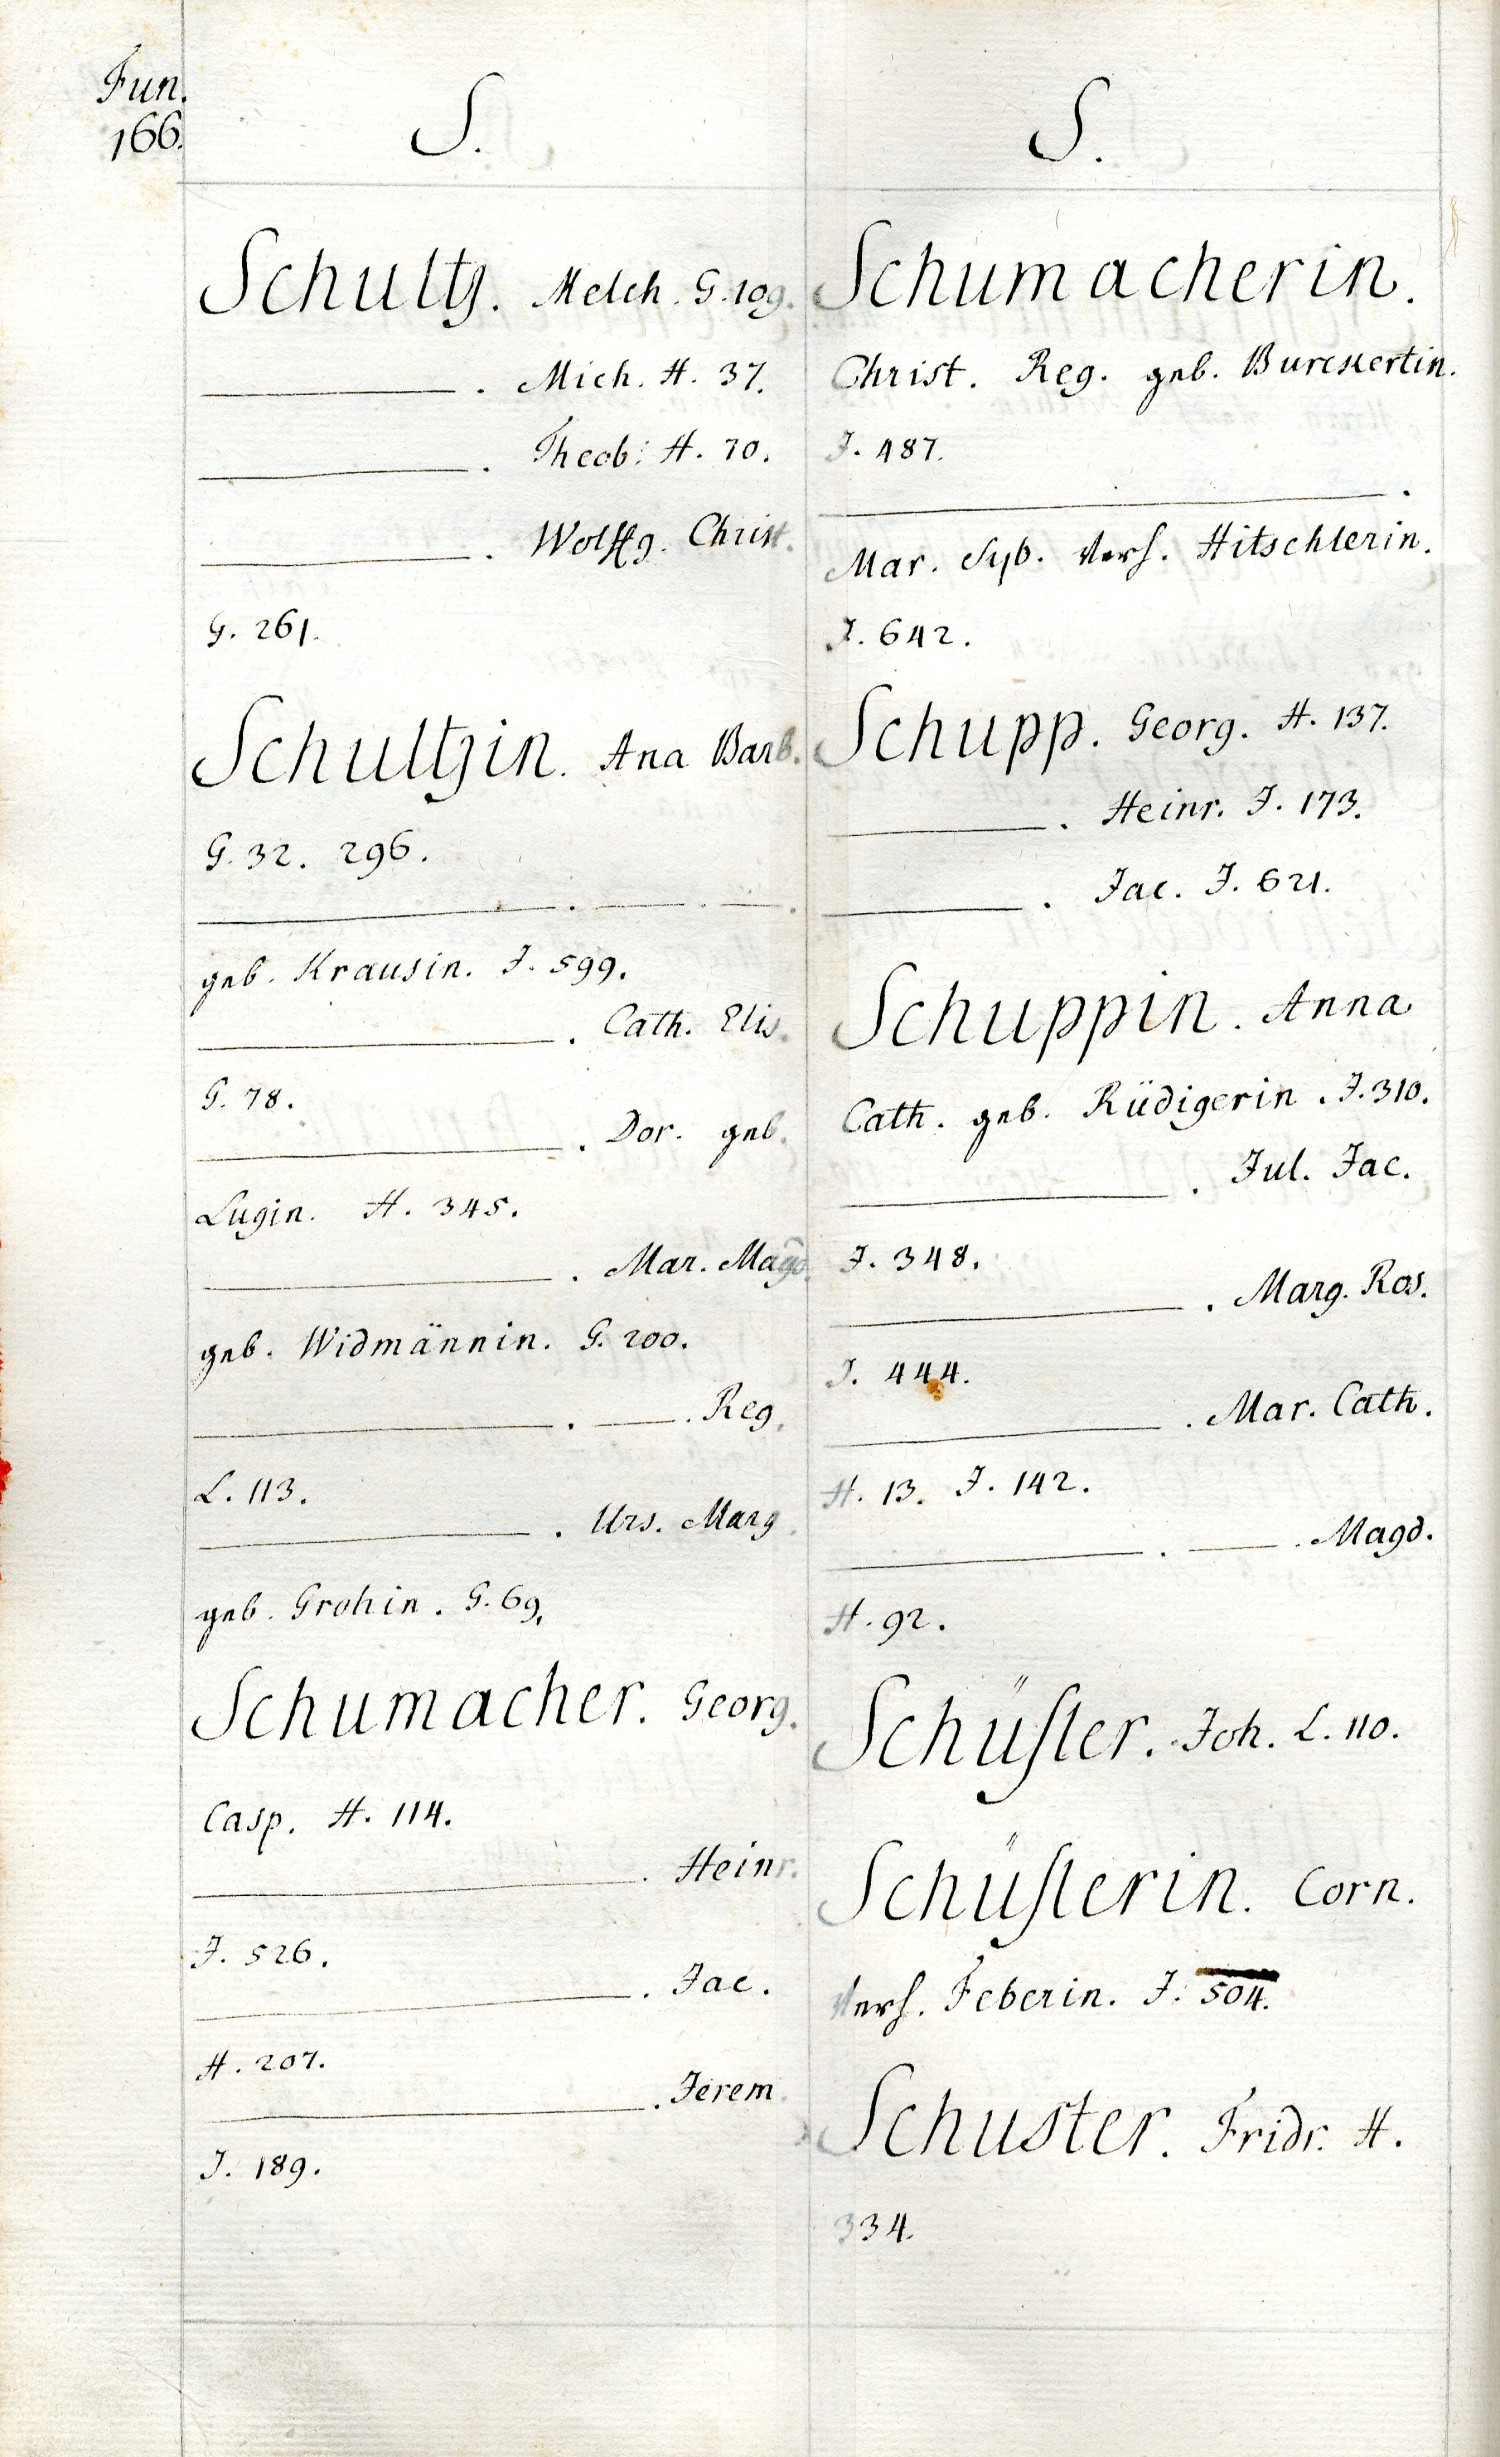 Fun.
166.
S.
Schultz. Melch. G. 109.
———. Mich. H. 37.
———. Theob: H. 70.
———. Wolffg. Christ.
G. 261.
Schultzin. Ana Barb.
G. 32. 296.
———. ——. ——.
geb. Krausin. J. 599.
———. Cath. Elis.
G. 78.
———. Dor. geb.
Lugin. H. 345.
———. Mar. Magd.
geb. Widmännin. G. 200.
———. ——. Reg.
L. 113.
———. Urs. Marg.
geb. Grohin. G. 69.
Schumacher. Georg.
Casp. H. 114.
———. Heinr.
J. 526.
———. Jac.
H. 207.
———. Jerem.
J. 189.
S.
Schumacherin.
Christ. Reg. geb. Burckertin.
J. 487.
———.
Mar. Syb. verh. Hitschlerin.
J. 642.
Schupp. Georg. H. 137.
———. Heinr. J. 173.
———. Jac. J. 621.
Schuppin. Anna
Cath. geb. Rüdigerin. J. 310.
———. Jul. Jac.
J. 348.
———. Marg. Ros.
J. 444.
———. Mar. Cath.
H. 13. J. 142.
———. ——. Magd.
H. 92.
Schüſter. Joh. L. 110.
Schüſterin. Corn.
verh. Feberin. J. 504.
Schuster. Fridr. H.
334.